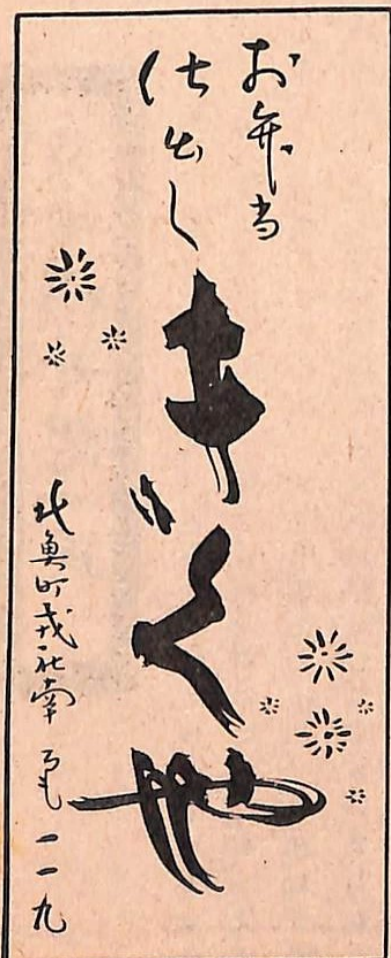 お弁当
仕出し
きくや
北魚町戎社南 電 一一九